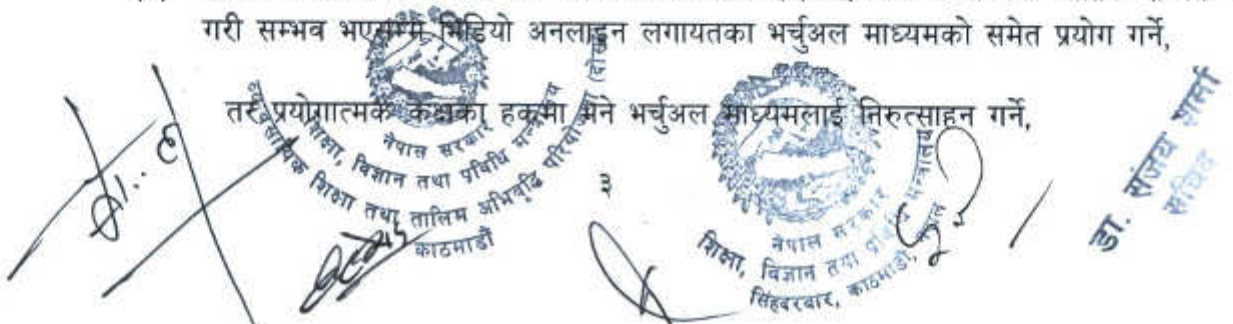 गरी सम्भव भएसम्म भिडियो अनलाइन लगायतका भर्चुअल माध्यमको समेत प्रयोग गर्ने,
तर प्रयोगात्मक कक्षाका हकमा भने भर्चुअल माध्यमलाई निरुत्साहन गर्ने,
३
नेपाल सरकार
शिक्षा, विज्ञान तथा प्रविधि मन्त्रालय
व्यवसायिक शिक्षा तथा तालिम अभिवृद्धि परियोजना (दोस्रो
काठमाडौं
नेपाल सरकार
शिक्षा, विज्ञान तथा प्रविधि मन्त्रालय
सिंहदरबार, काठमाडौं, नेपाल
डा. संजय शर्मा
सचिव